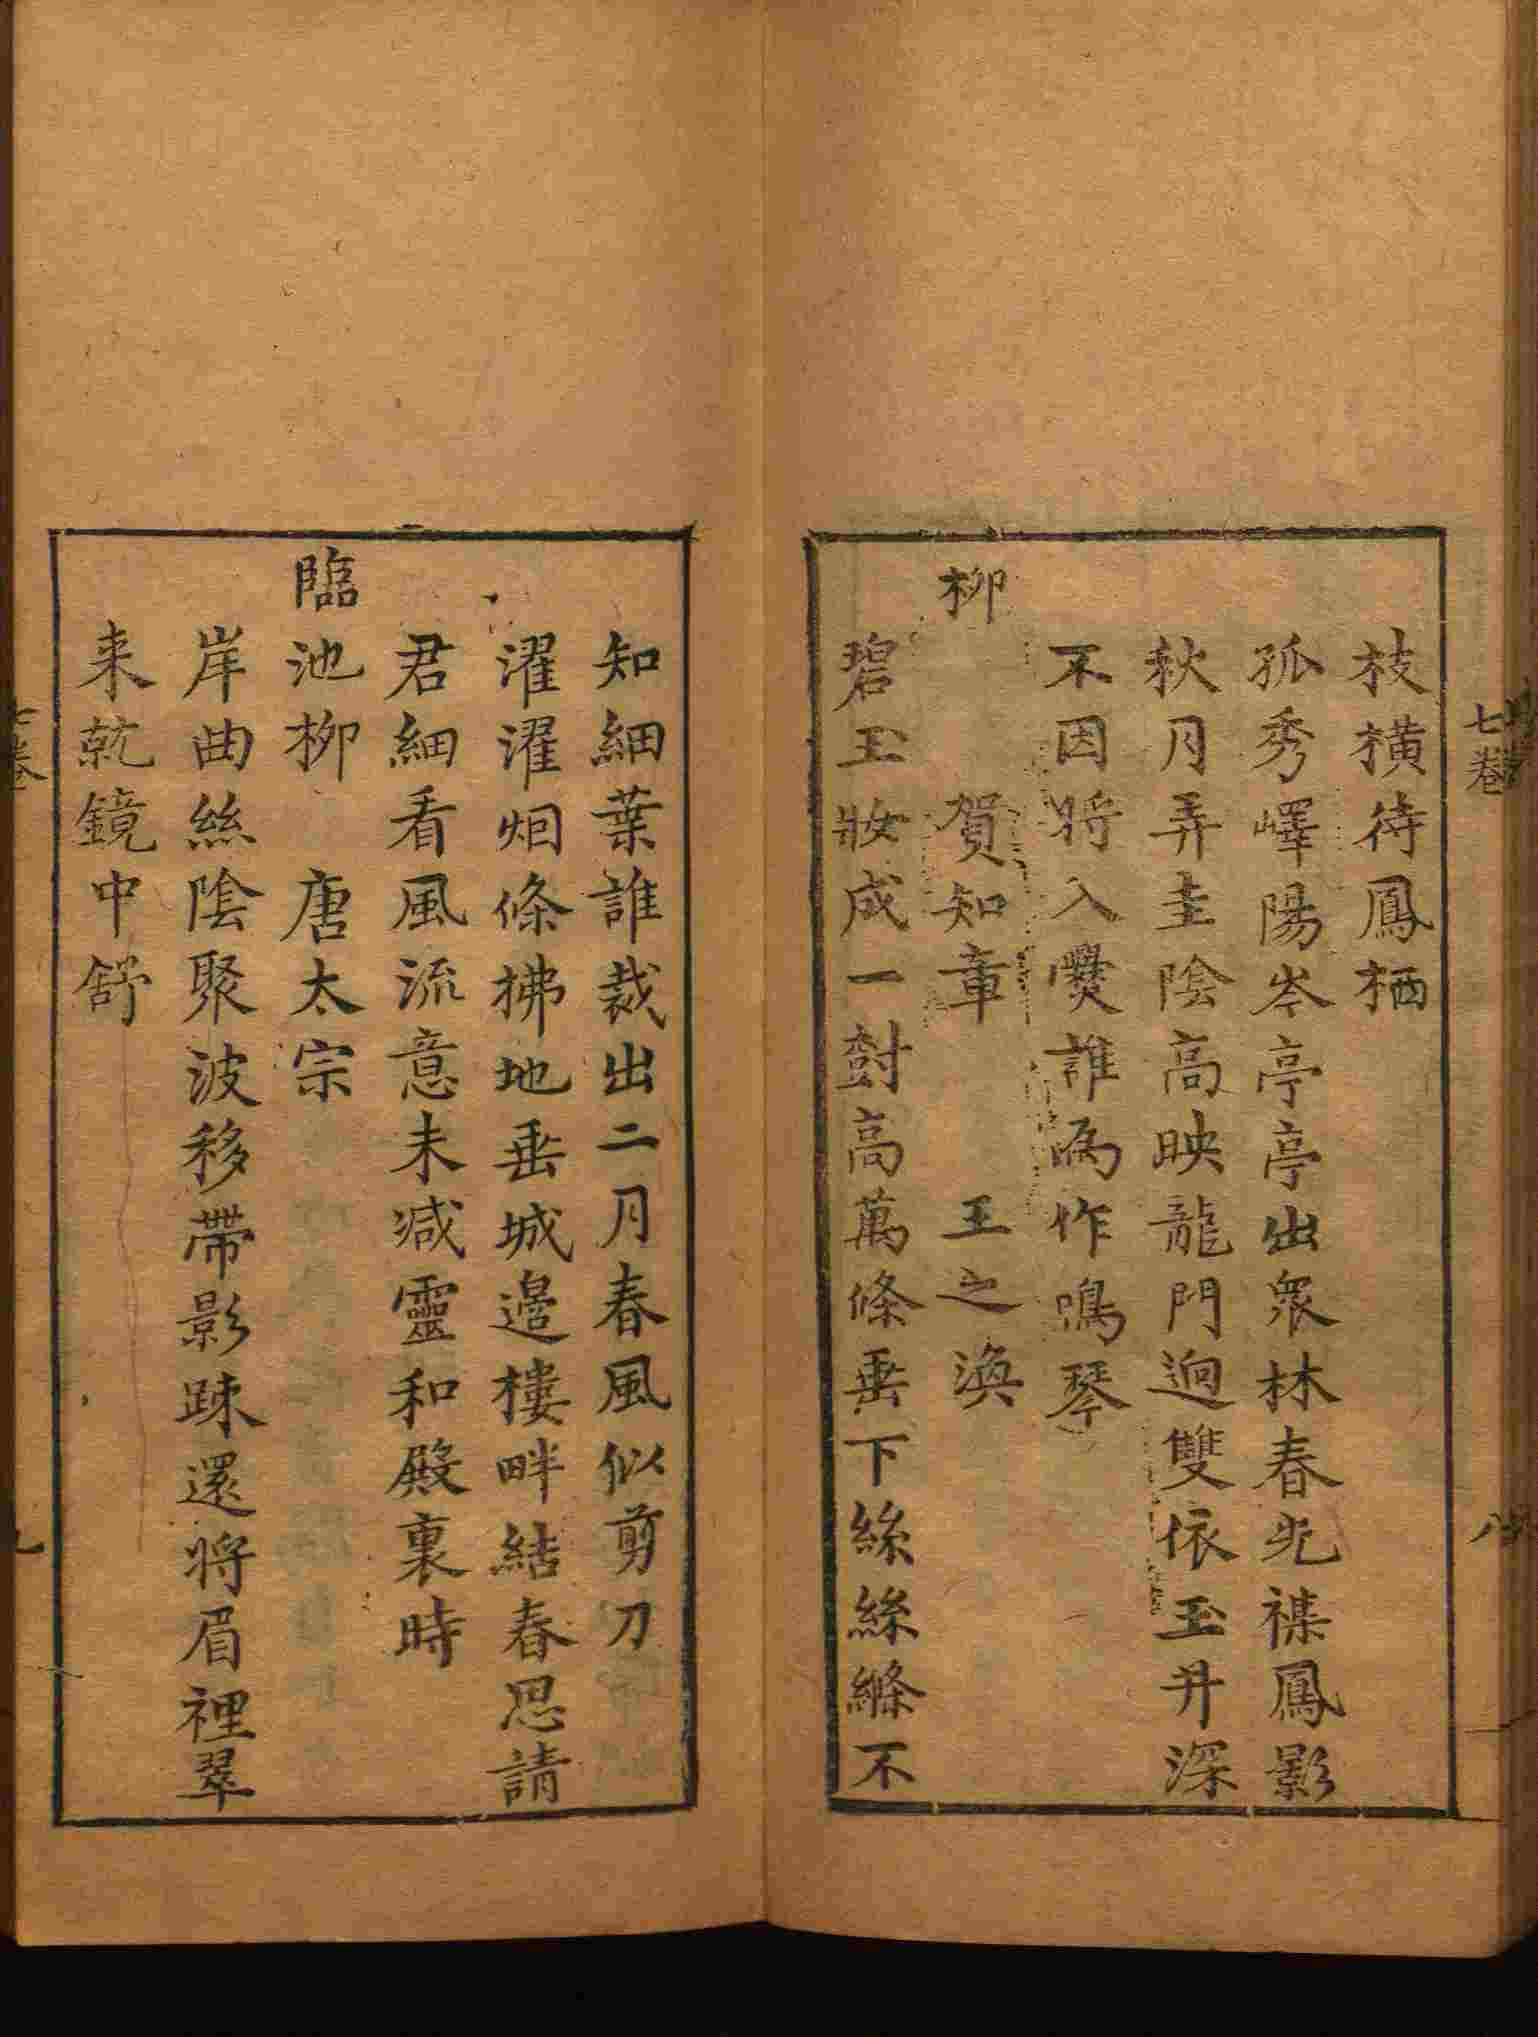 七卷
八
枝橫待鳳栖
孤秀嶧陽岑亭亭出衆林春光襍鳳影
秋月弄圭陰高映龍門迥雙依玉井深
不因將入爨誰爲作鳴琴
柳　賀知章　王之渙
碧玉妝成一對高萬條垂下絲絲縧不
知細葉誰裁出二月春風似剪刀
濯濯烟條拂地垂城邉樓畔結春思請
君細看風流意未减靈和殿裏時
臨池柳　唐太宗
岸曲絲陰聚波移帶影踈還將眉裡翠
来就鏡中舒